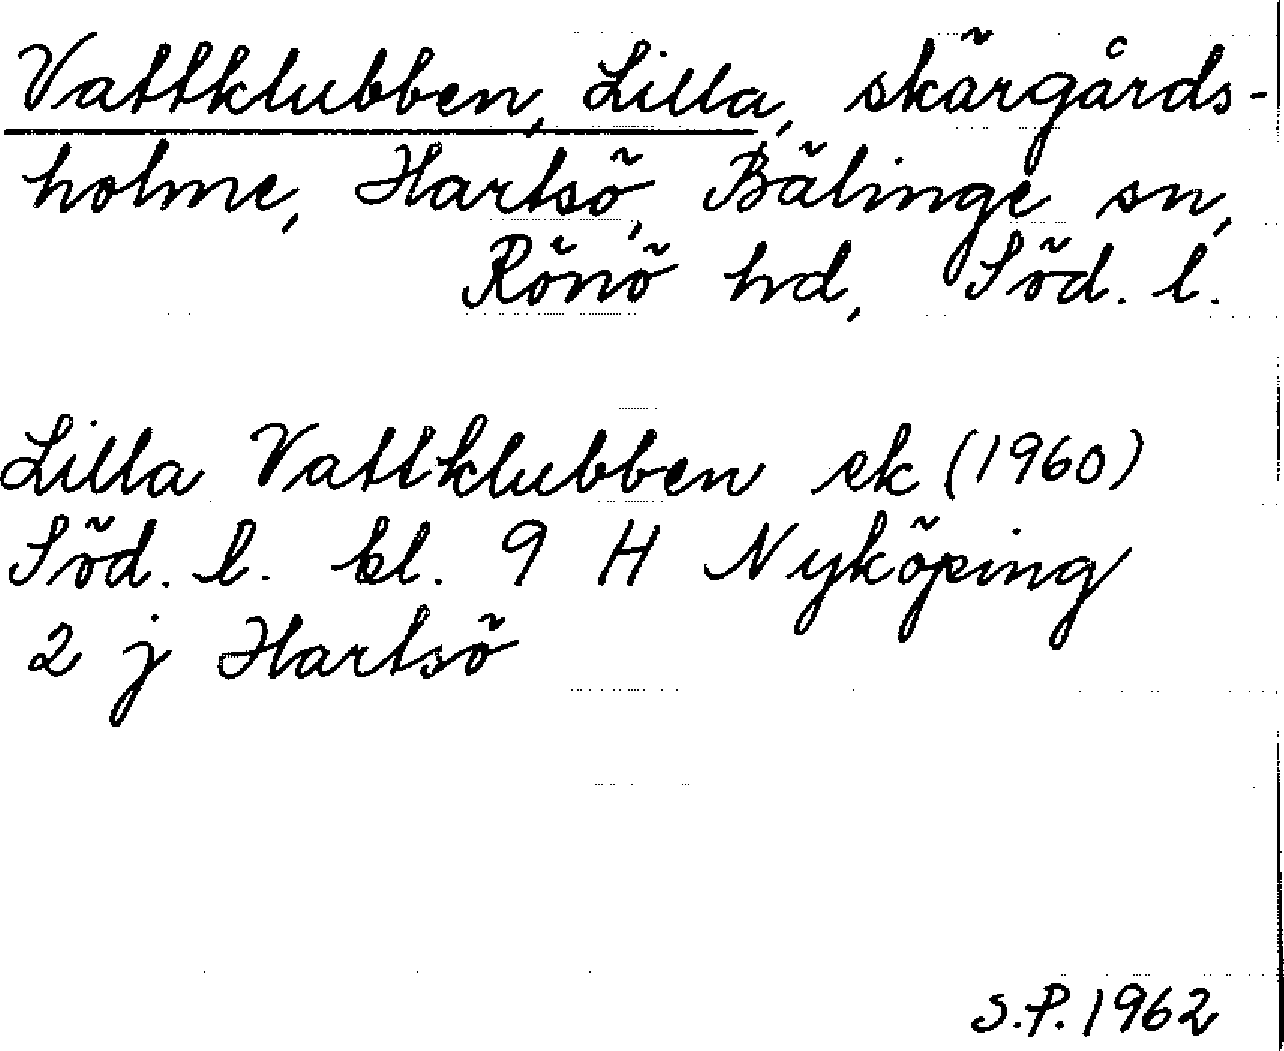 Vattklubben, Lilla, skärgårds-
holme, Hartsö, Bälinge sn,
Rönö hd, Söd. l.
Lilla Vattklubben ek (1960)
Söd. l. bl. 9 H Nyköping
2 j Hartsö
S.P. 1962